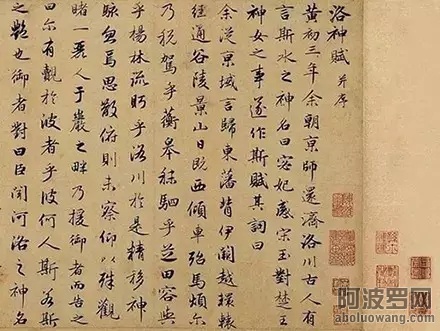 洛神賦 并序
黃初三年余朝京師還濟洛川古人有
言斯水之神名曰宓妃感宋玉對楚王
神女之事遂作斯賦其詞曰
余從京域言歸東藩背伊闕越轘轅
經通谷陵景山日既西傾車殆馬煩尓
乃稅駕乎蘅皋秣駟乎芝田容與
乎楊林流眄乎洛川於是精移神
駭忽焉思散俯則未察仰以殊觀
睹一麗人于巖之畔乃援御者而告之
曰尓有覿於彼者乎彼何人斯若斯
之豔也御者對曰臣聞河洛之神名
阿波罗网
aboluowang.com